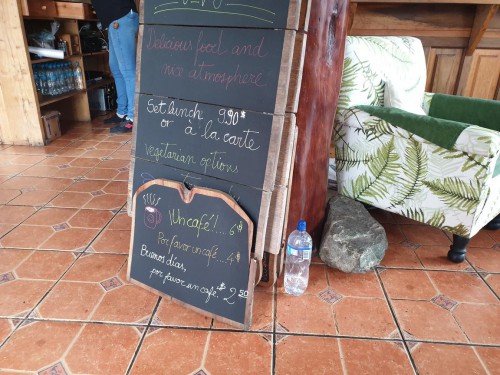 Delicious food and
nice atmosphere
Set lunch 9.90$
or à la carte
vegetarian options
¡Un café!.... 6$
Por favor un café.... 4$
Buenos días,
por favor un café. $ 2.50